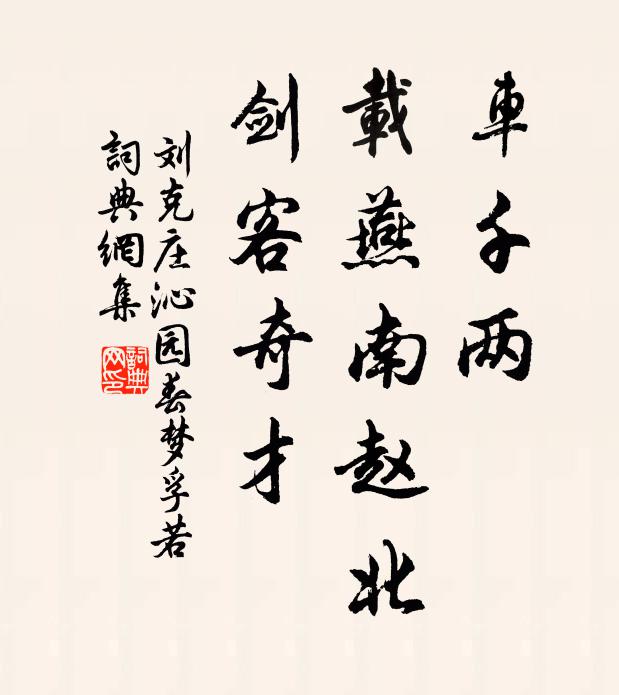 車千两
載燕南赵北
剑客奇才
刘克庄沁园春梦孚若
詞典網集
詞典网印